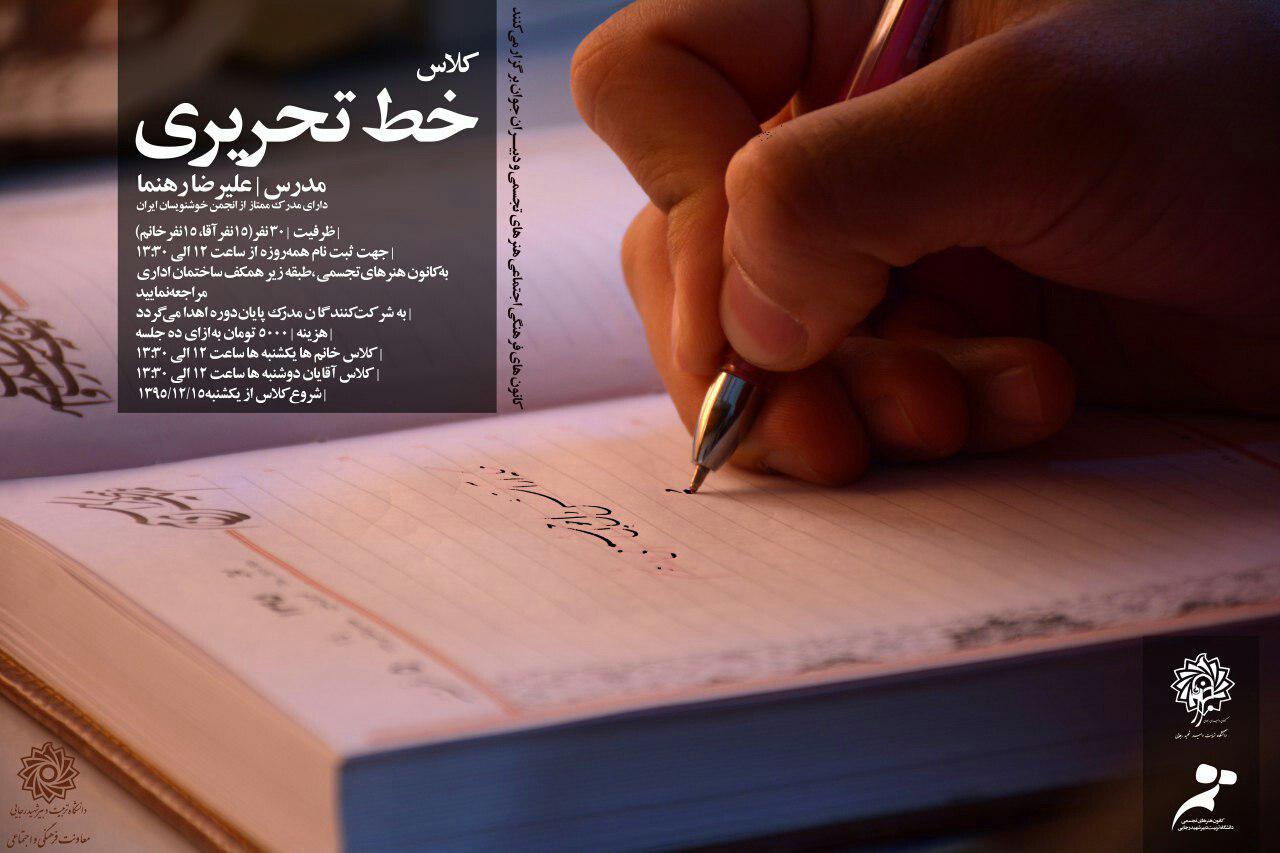 کلاس
خط تحریری
مدرس | علیرضا رهنما
دارای مدرک ممتاز از انجمن خوشنویسان ایران
| ظرفیت | ۳۰ نفر(۱۵ نفر آقا، ۱۵ نفر خانم)
| جهت ثبت نام همه‌روزه از ساعت ۱۲ الی ۱۳:۳۰
به کانون هنرهای تجسمی ،طبقه زیر همکف ساختمان اداری
مراجعه نمایید
| به شرکت‌کنندگان مدرک پایان دوره اهدا می‌گردد
| هزینه | ۵۰۰۰ تومان به‌ازای ده جلسه
| کلاس خانم ها یکشنبه ها ساعت ۱۲ الی ۱۳:۳۰
| کلاس آقایان دوشنبه ها ساعت ۱۲ الی ۱۳:۳۰
| شروع کلاس از یکشنبه ۱۳۹۵/۱۲/۱۵
کانون های فرهنگی اجتماعی هنرهای تجسمی و دبیــران جوان برگزار می‌کنند
دانشگاه تربیت دبیر شهید رجایی
معاونت فرهنگی و اجتماعی
دانشگاه تربیت دبیر شهید رجایی
کانون هنرهای تجسمی
دانشگاه تربیت دبیر شهید رجایی